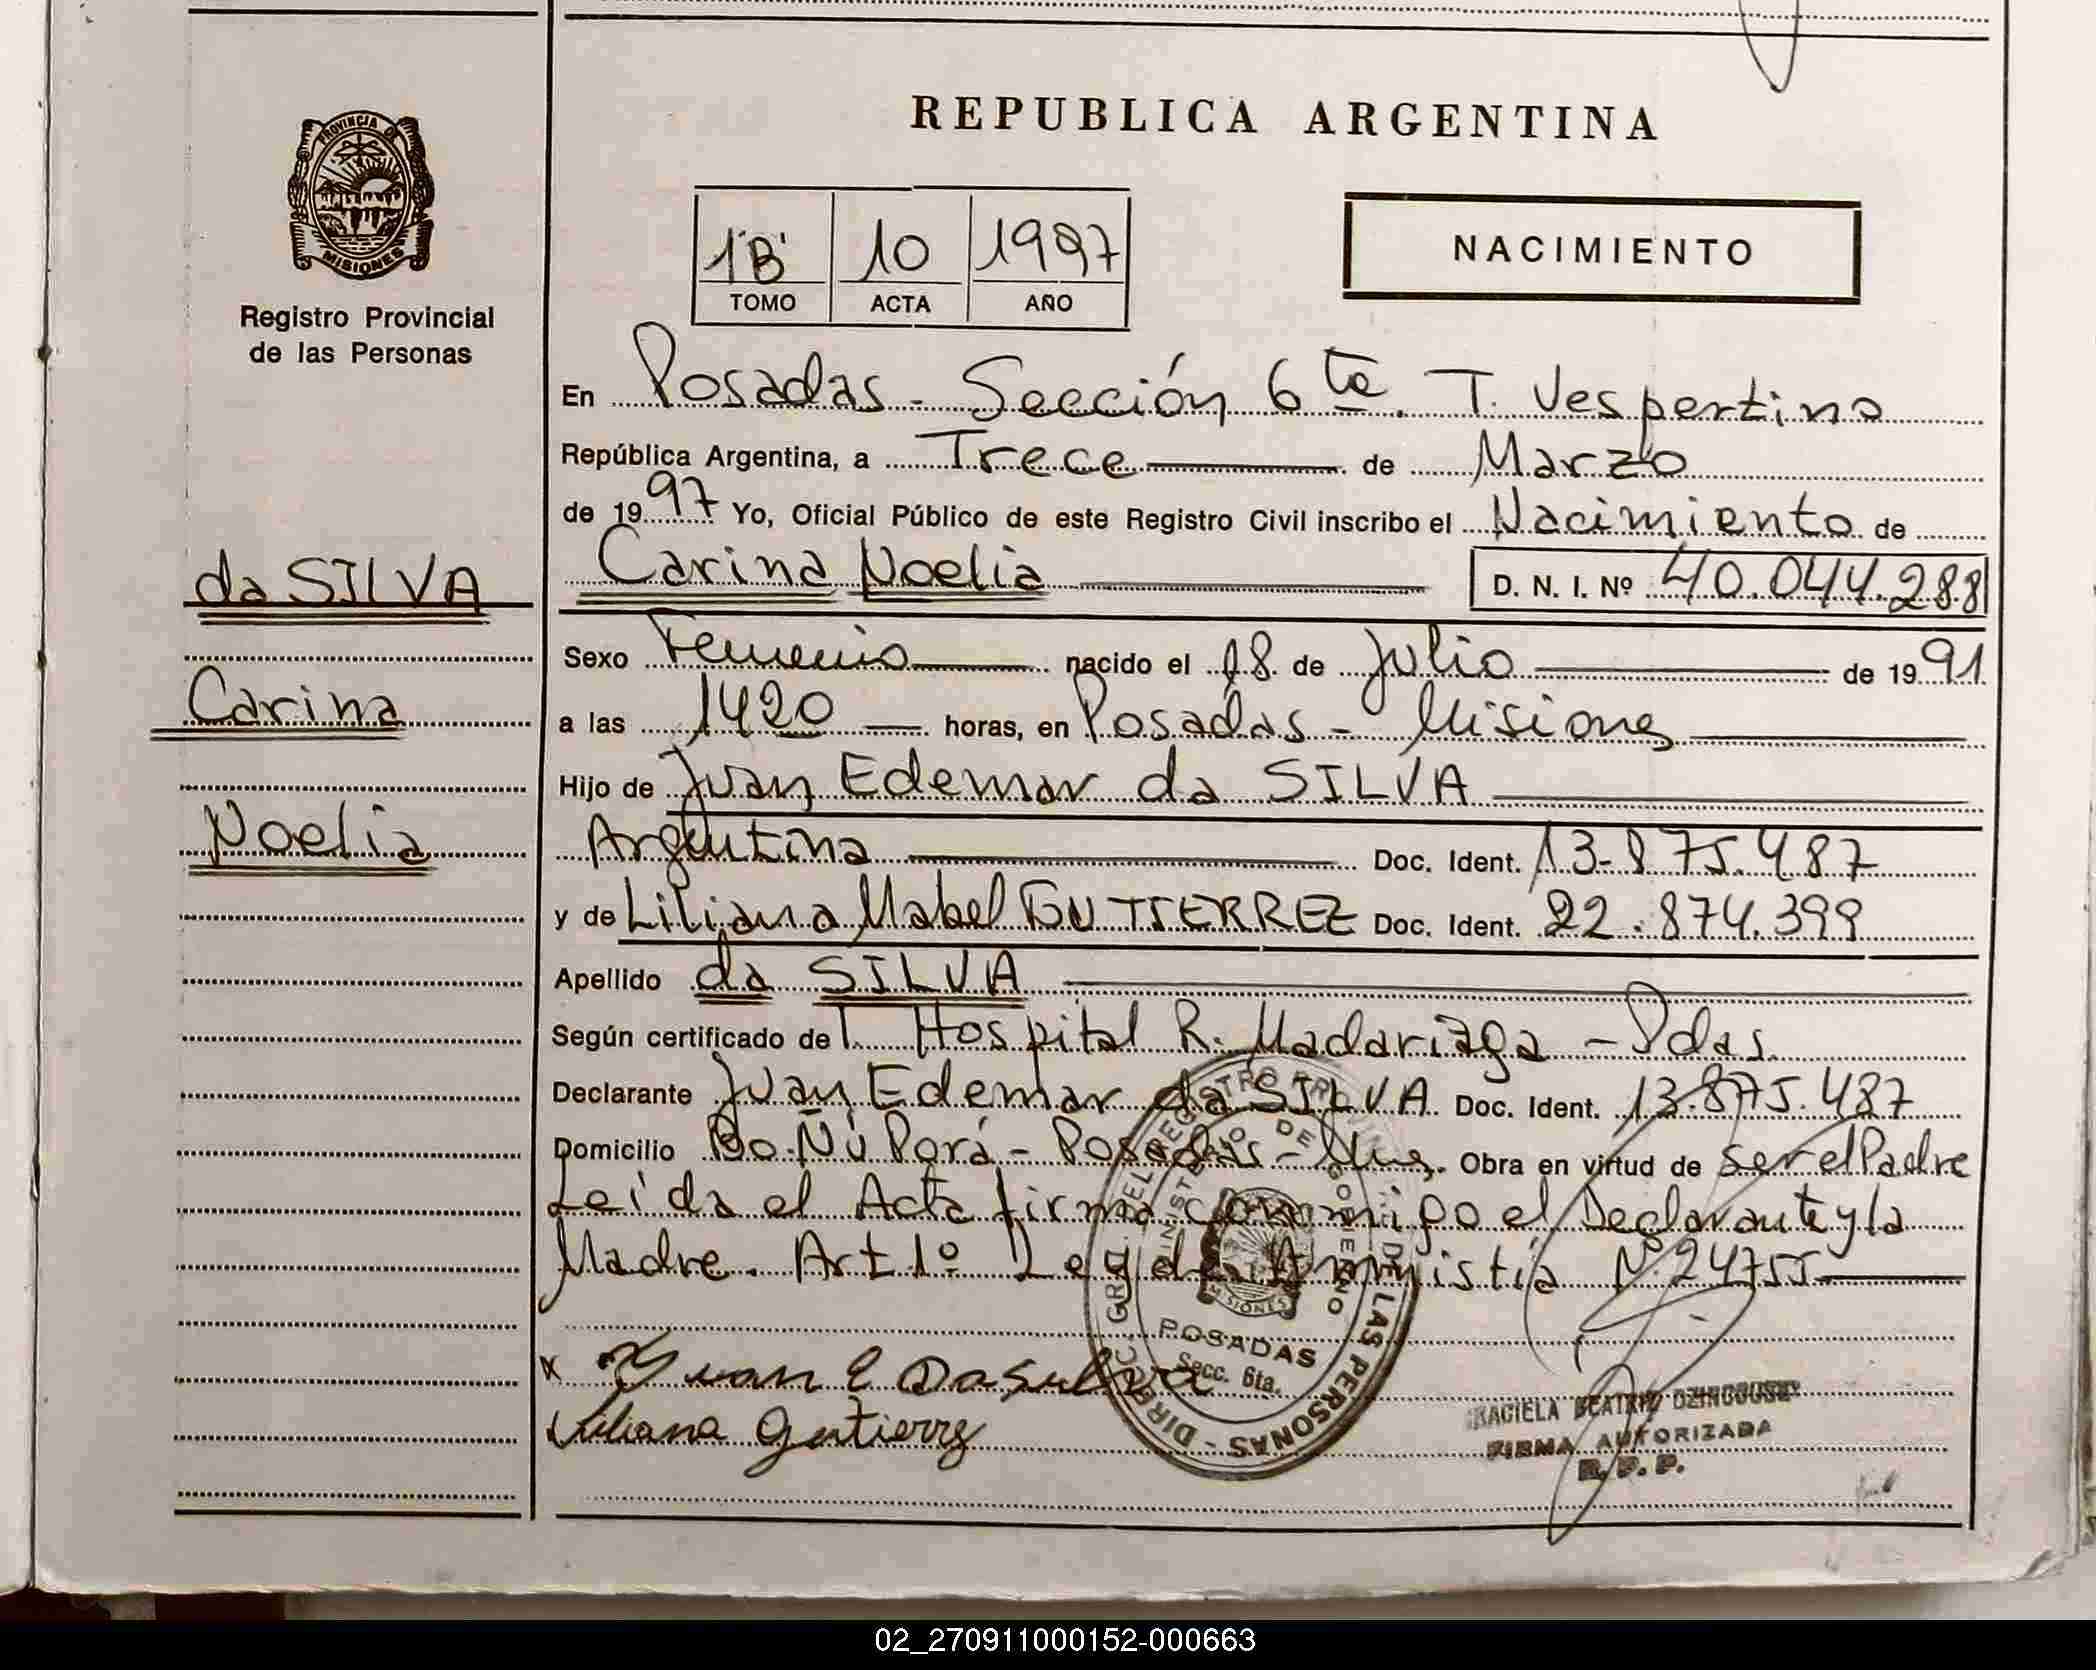 REPUBLICA ARGENTINA
PROVINCIA DE
MISIONES
Registro Provincial
de las Personas
1"B" 10 1997
TOMO ACTA AÑO
NACIMIENTO
da SILVA
Carina
Noelia
En Posadas - Sección 6ta. T. Vespertino
República Argentina, a Trece de Marzo
de 1997 Yo, Oficial Público de este Registro Civil inscribo el Nacimiento de
Carina Noelia D. N. I. Nº 40.044.288
Sexo Femenino nacido el 18 de Julio de 1991
a las 1420 horas, en Posadas - Misiones
Hijo de Juan Edemar da SILVA
Argentina Doc. Ident. 13.875.487
y de Liliana Mabel GUTIERREZ Doc. Ident. 22.874.399
Apellido da SILVA
Según certificado del Hospital R. Madariaga - Pdas.
Declarante Juan Edemar da SILVA Doc. Ident. 13.875.487
Domicilio Bo. Ñu Porá - Posadas - Mnes. Obra en virtud de ser el Padre
Leída el Acta firma conmigo el Declarante y la
Madre. Art 1º Ley de Amnistía Nº 24755
DIREC. GRAL. DEL REGISTRO PROVINCIAL DE LAS PERSONAS -
MINISTERIO DE GOBIERNO
MISIONES
POSADAS
Secc. 6ta.
x Juan E Da Silva
Liliana Gutierrez
GRACIELA BEATRIZ
FIRMA AUTORIZADA
R. P. P.
02_270911000152-000663